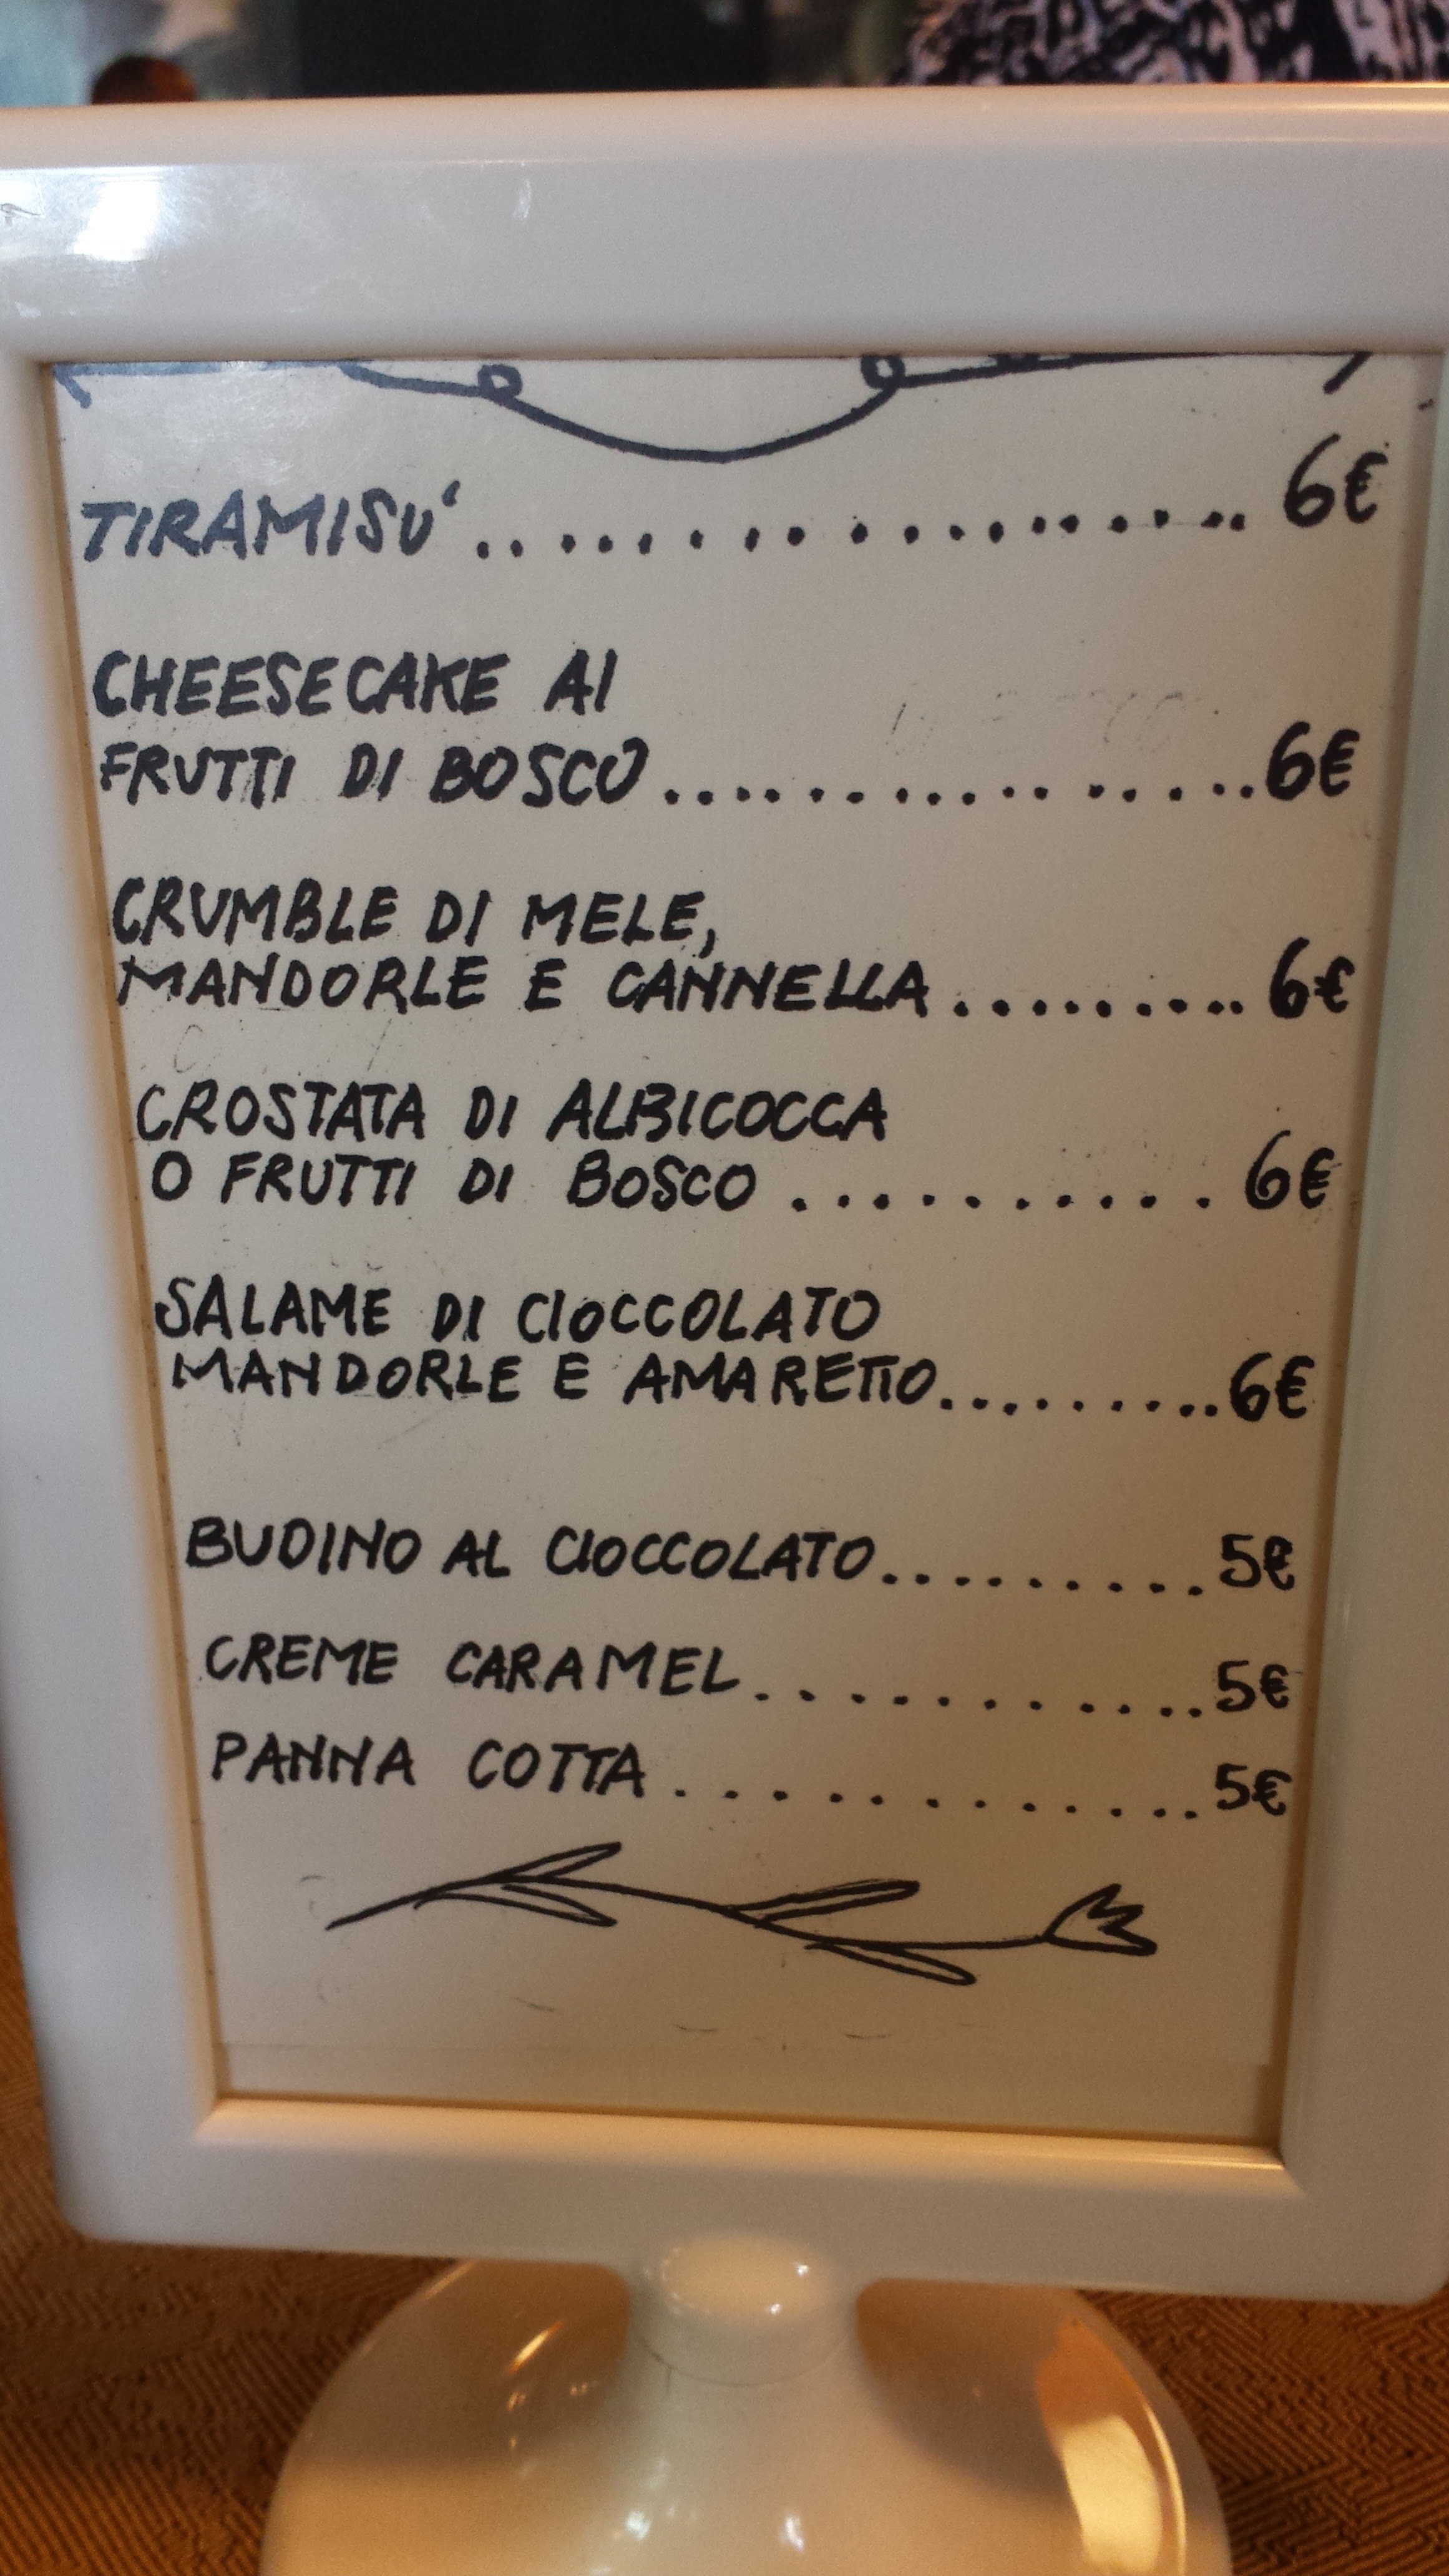 TIRAMISU'.................... 6€
CHEESECAKE AI
FRUTTI DI BOSCO................6€
CRUMBLE DI MELE,
MANDORLE E CANNELLA......... 6€
CROSTATA DI ALBICOCCA
O FRUTTI DI BOSCO........... 6€
SALAME DI CIOCCOLATO
MANDORLE E AMARETTO.........6€
BUDINO AL CIOCCOLATO.........5€
CREME CARAMEL............5€
PANNA COTTA............5€